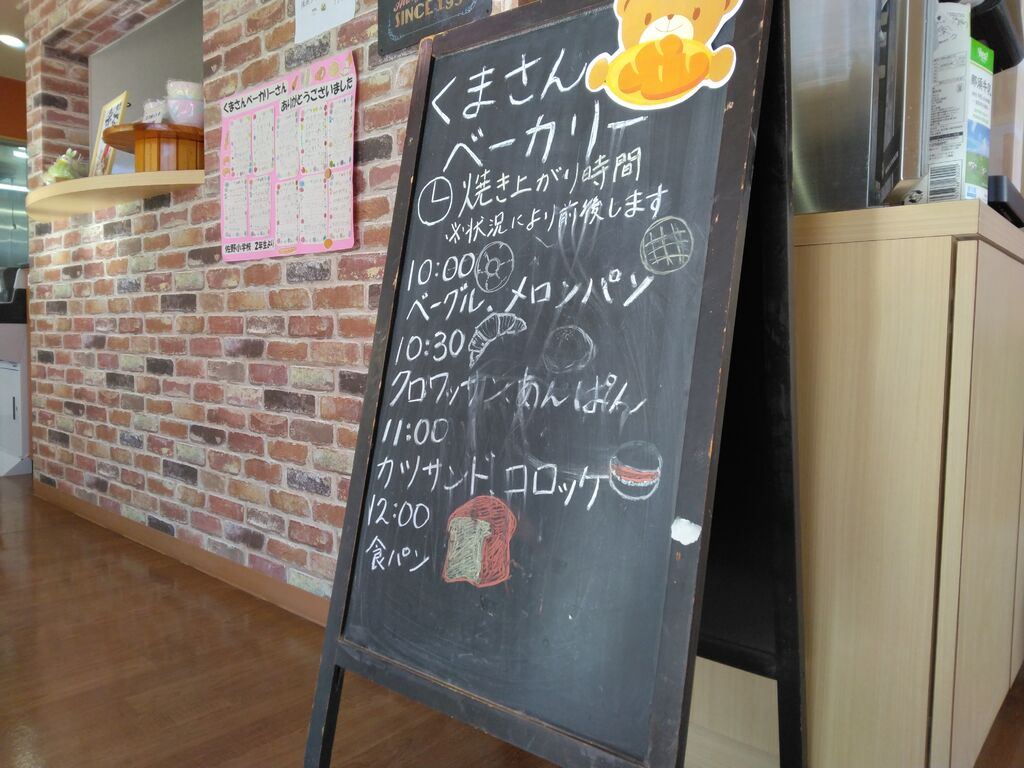 SINCE 195
くまさんベーカリーさん
ありがとうございました
佐野小学校 2年生より
くまさん
ベーカリー
焼き上がり時間
※状況により前後します
10:00
ベーグル、メロンパン
10:30
クロワッサン、あんぱん
11:00
カツサンド、コロッケ
12:00
食パン